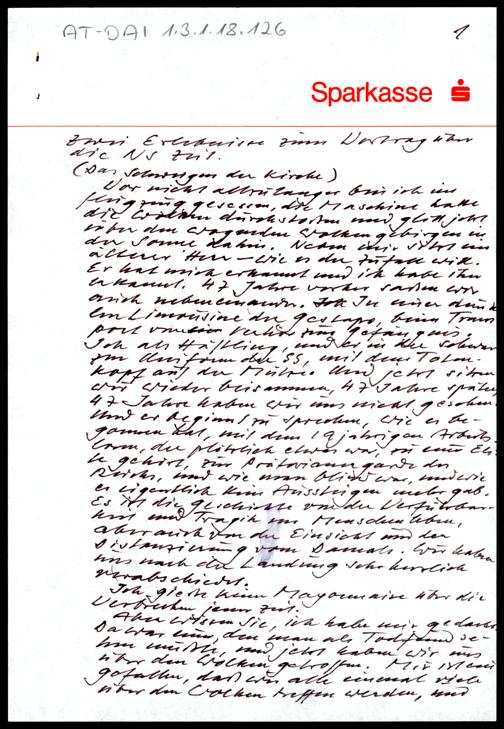 AT-DAI 1.3.1.18.126
1
Sparkasse
Zwei Erlebnisse zum Vortrag über
die NS Zeit.
(Das Schweigen der Kirche)
Vor nicht allzulanger bin ich im
Flugzeug gesessen, die Maschine hatte
die Wolken durchstoßen und glitt jetzt
über den wogenden Wolkengebirgen in
der Sonne dahin. Neben mir sitzt ein
älterer Herr – wie es der Zufall will.
Er hat mich erkannt und ich habe ihn
erkannt. 47 Jahre vorher saßen wir
auch nebeneinander. In einer dunk
len Limousine der Gestapo, beim Trans
port vom Verhör zum Gefängnis,
Ich als Häftling, und er in der schwar
zen Uniform der SS, mit dem Toten-
kopf auf der Mütze. Und jetzt sitzen
wir wieder beisammen, 47 Jahre später
47 Jahre haben wir uns nicht gesehen.
Und er beginnt zu sprechen, wie es be-
gonnen hat, mit dem 19jährigen Arbeits
losen, der plötzlich etwas war, zu einer Eli-
te gehört, zur Prätorianergarde des
Reichs, und wie man blind war, und wie
es eigentlich kein Aussteigen mehr gab.
Es ist die Geschichte von der Verführbar-
keit und Tragik im Menschenleben,
aber auch von der Einsicht und der
Distanzierung vom Damals. Wir haben
uns nach der Landung sehr herzlich
verabschiedet.
Ich gieße keine Mayonnaise über die
Verbrechen jener Zeit.
Aber wissen Sie, ich habe mir gedacht
Da war nun, den man als Todfeind se-
hen mußte, und jetzt haben wir uns
über den Wolken getroffen. Mir ist ein
gefallen, daß wir alle einmal viele
über den Wolken treffen werden, und